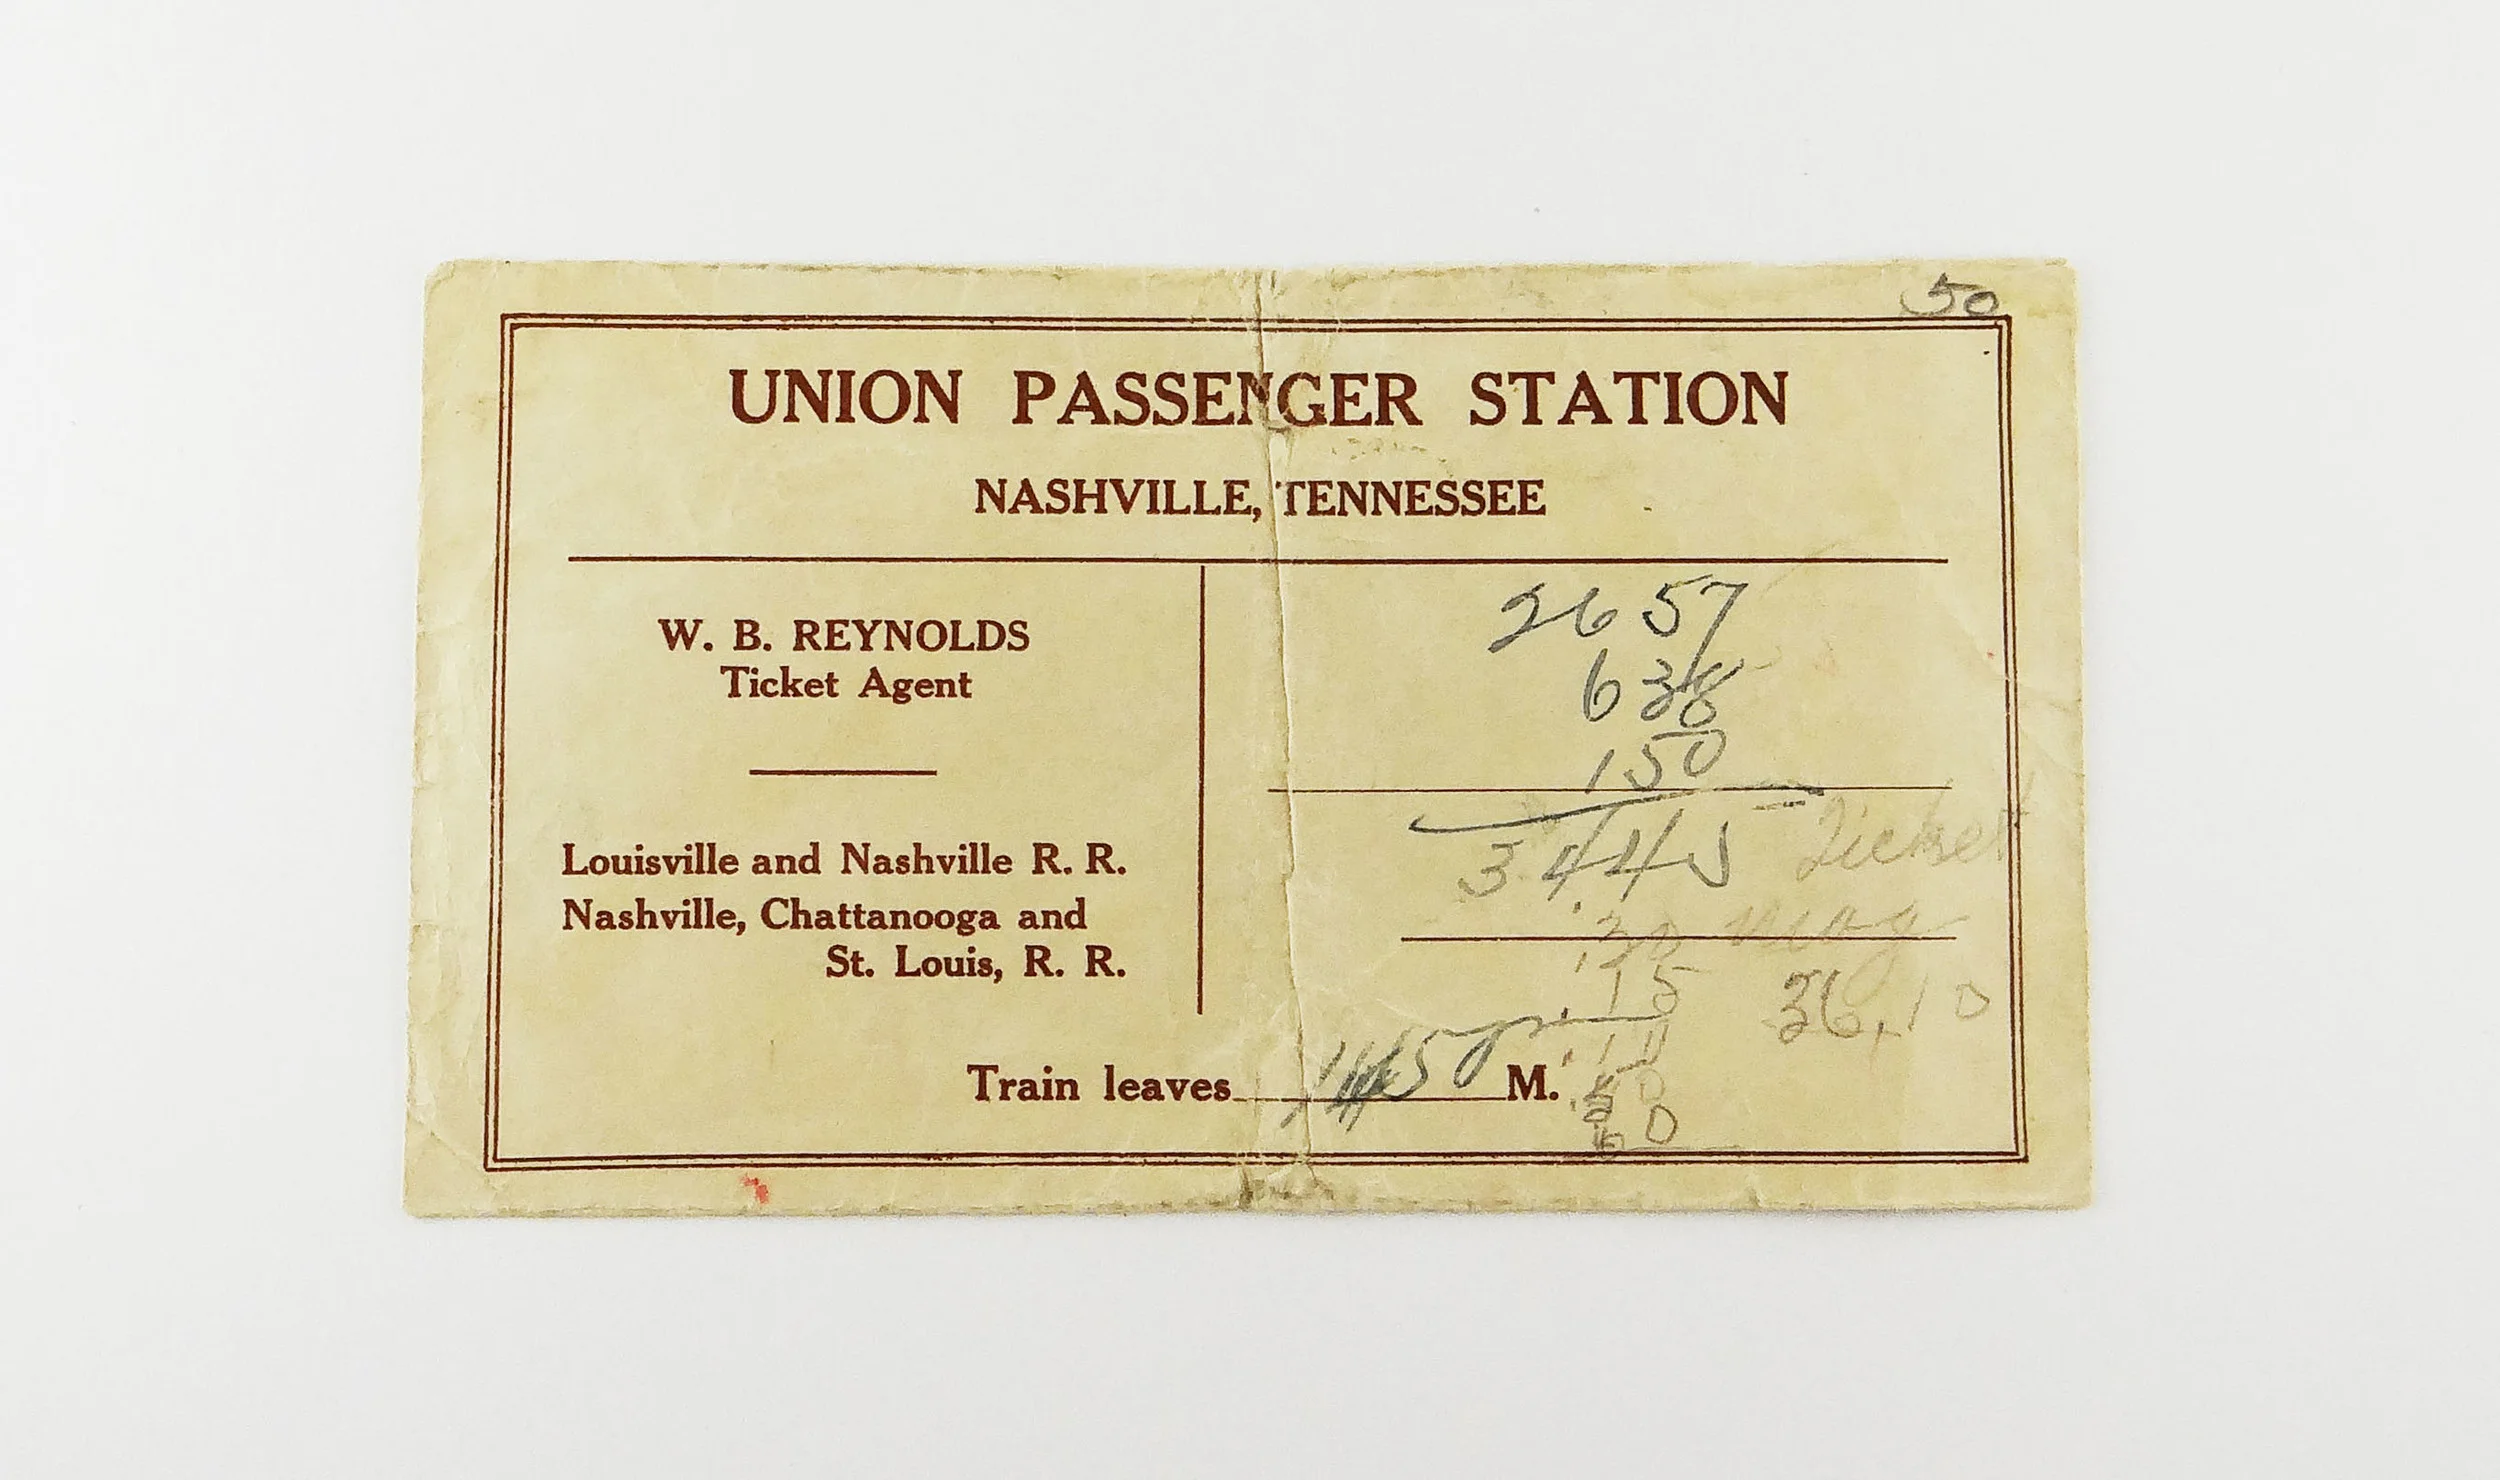 50
UNION PASSENGER STATION
NASHVILLE, TENNESSEE
W. B. REYNOLDS
Ticket Agent
Louisville and Nashville R. R.
Nashville, Chattanooga and
St. Louis, R. R.
2657
638
150
3445 Ticket
.30
.15 36.10
Train leaves 50 M.